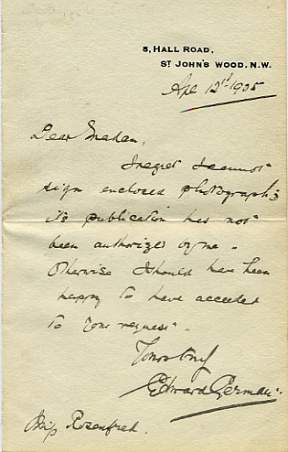 5, HALL ROAD,
ST JOHN'S WOOD, N.W.
Apl 12st 1905
Dear Madam,
I regret I cannot
sign enclosed photograph;
its publication has not
been authorized by me -
Otherwise I should have been
happy to have acceded
to your request.
Yours truly
Edward German.
Miss Rosenfeld.